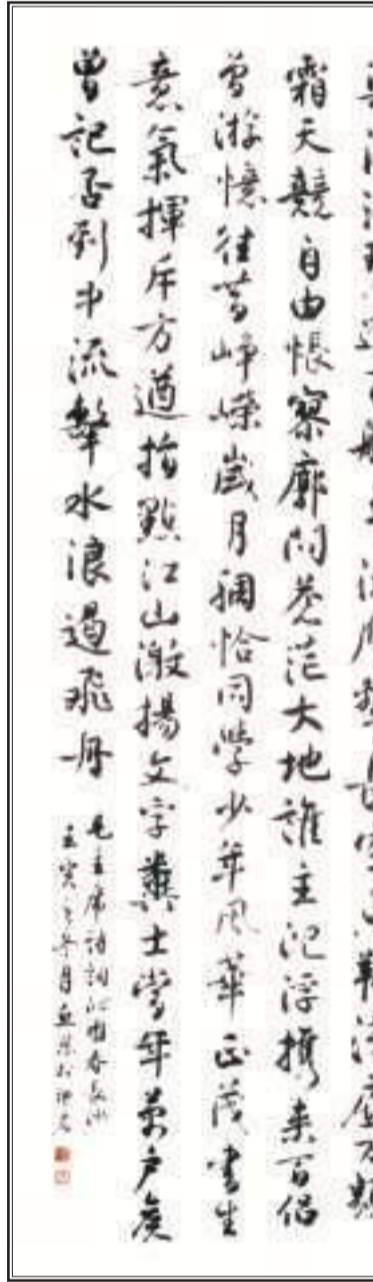 透百舸爭流鷹擊長空魚翔淺底万類
霜天競自由悵寥廓問蒼茫大地誰主沉浮攜來百侶
曾游憶往昔崢嶸歲月稠恰同學少年風華正茂書生
意氣揮斥方遒指點江山激揚文字糞土當年萬戶侯
曾記否到中流擊水浪遏飛舟
毛主席詩詞沁園春長沙
壬寅之年月